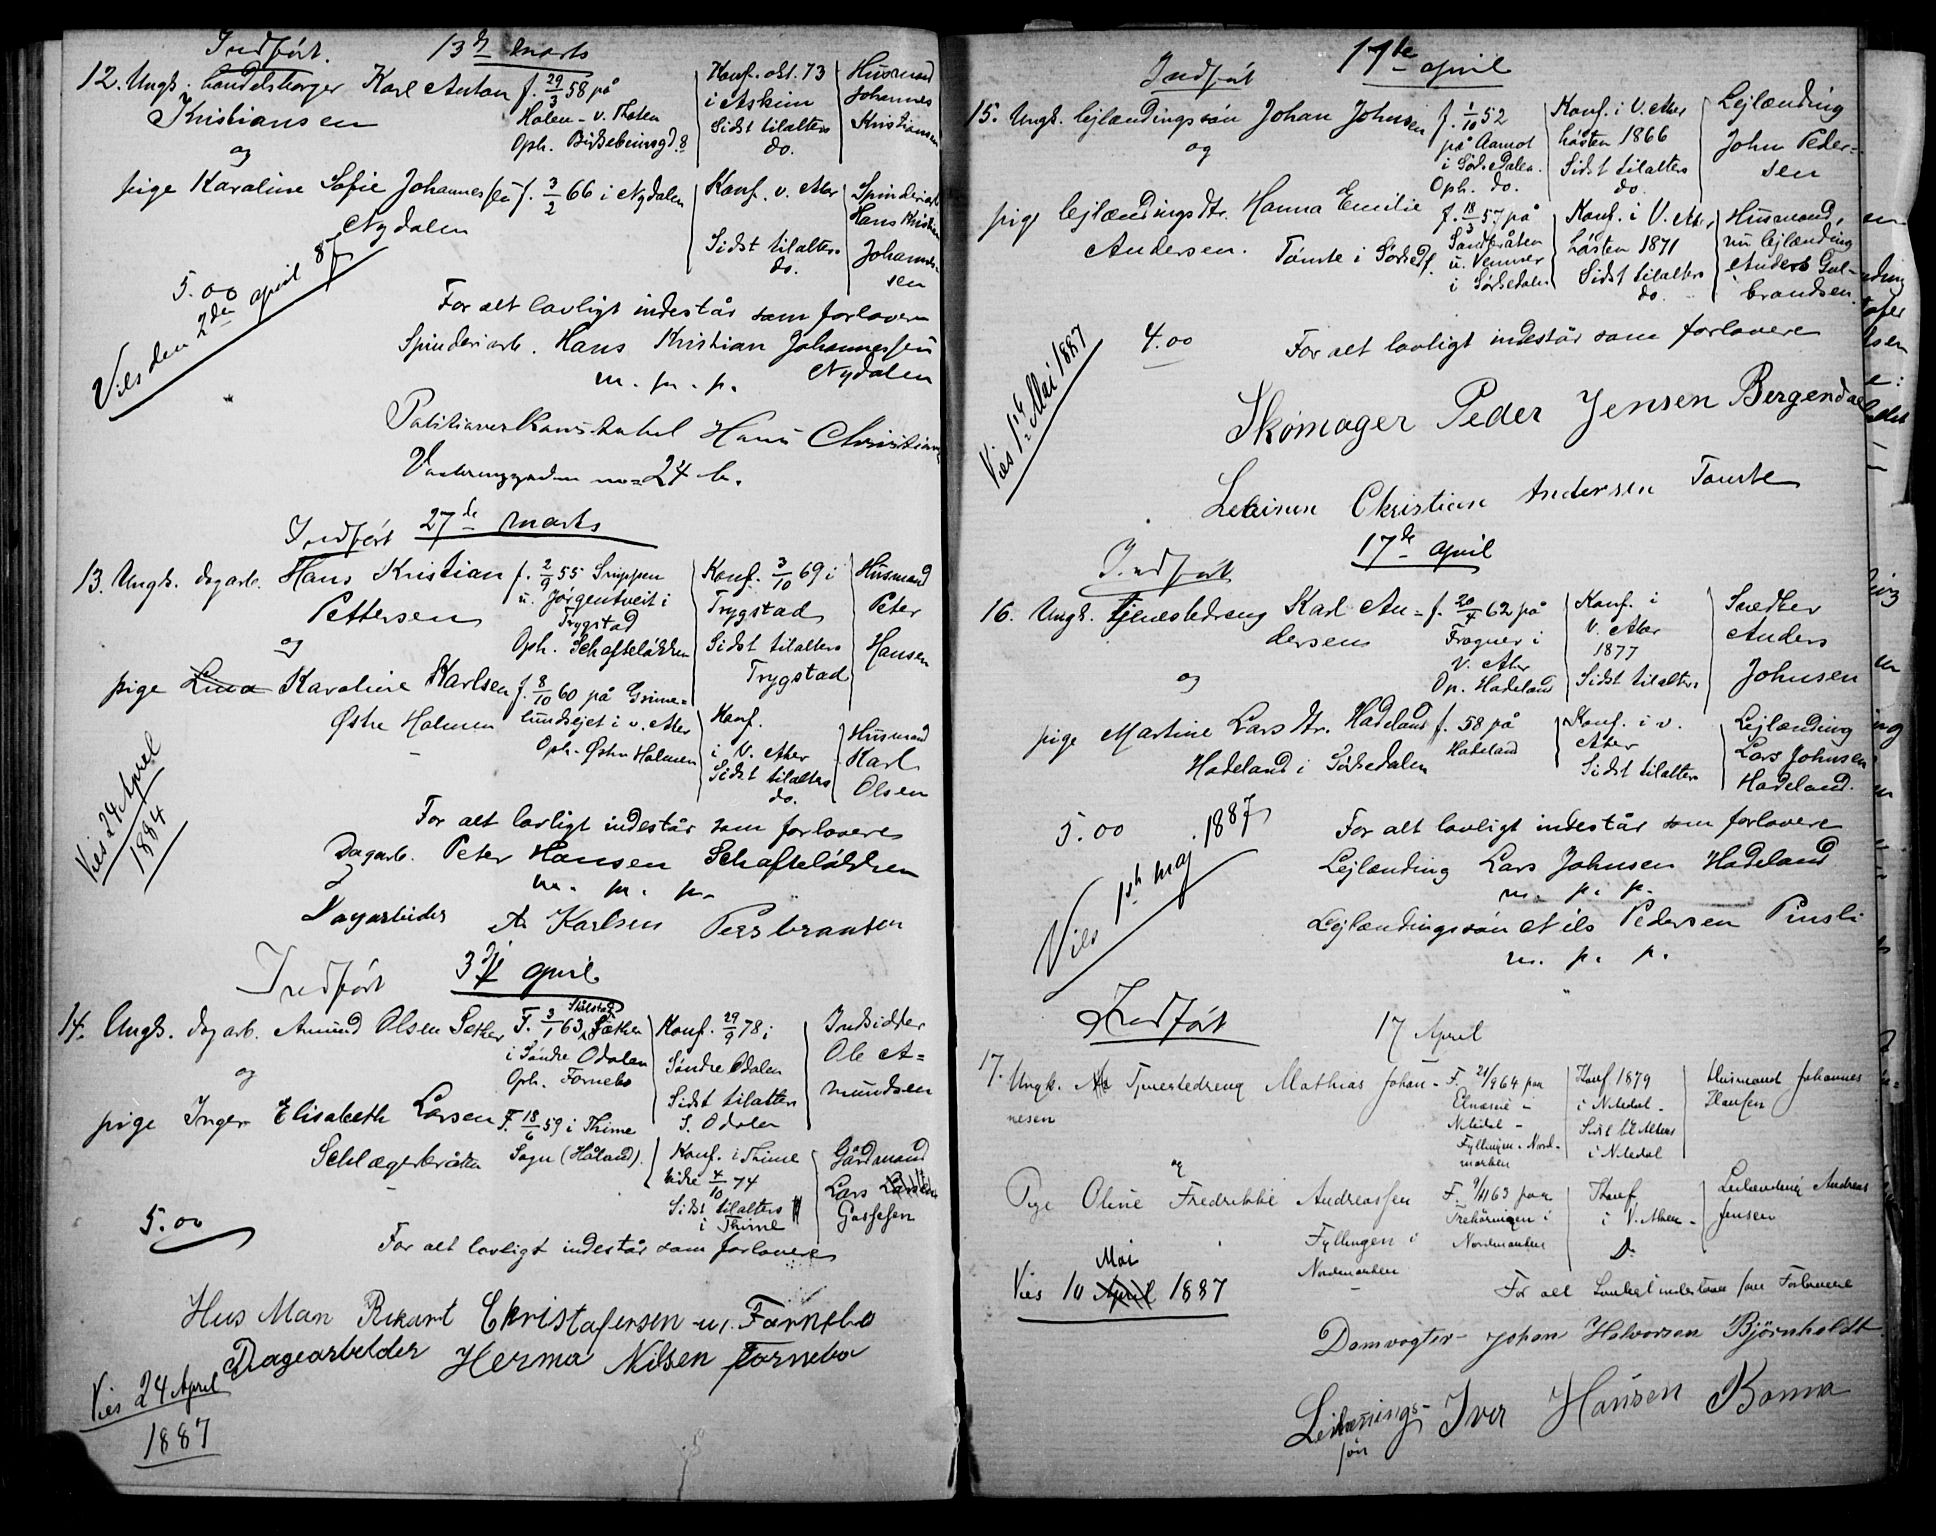 Indført. 13de marts
12. Ungk. handelsborger Karl Anton
Kristiansen
f. 29/3 58 på
Holen - v. Thoten
Oph. Birkebeinergd. 8
Konf. okt. 73
i Askim
Sidst tilalters
do.
Husmand
Johannes
Kristiansen
og
pige Karoline Sofie Johannessen
Nydalen
f. 3/2 66 i Nydalen
Konf. v. Aker
Sidst tilalters
do.
Spinderiarb.
Hans Kristian
Johannes-
sen
5.00
Vies den 2den april 87
For alt lovligt indestår som forlovere
Spinderiarb. Hans Kristian Johannessen
m. p. p. Nydalen
Politioverkonstabel Hans Christian
no 24 b.
Indført 27de marts
13. Ungk. dagarb. Hans Kristian
Pettersen
f. 2/9 55
u. Jørgentveit i
Trygstad
Oph. Schafteløkken
Konf. 3/10 69 i
Trygstad
Sidst tilalters
Trygstad
Husmand
Peter
Hansen
og
pige Lina Karoline Karlsen
Østre Holmen
f. 8/10 60 på Grime-
lundsejet i v. Aker
Oph. Østre Holmen
Konf.
i V. Aker
Sidst tilalters
do.
Husmand
Karl
Olsen
Vies 24 April
1884
For alt lovligt indestår som forlovere
Dagarb. Peter Hansen Schafteløkken
m. p. p.
Dagarbeider A. Karlsen Persbraaten
Indført 3die april
14. Ungk. dagarb. Amund Olsen Sæther
F. 3/1 63 Skålstad Sæther
i Søndre Odalen
Oph. Fornebo
Konf. 29/9 78 i
Søndre Odalen
Sidst tilalters
S. Odalen
Indsidder
Ole A=
mundsen
og
pige Inger Elisabeth Larsen
F. 18/6 59 i Thime
Sogn (Håland).
Konf. i Thime
kirke 4/10 74
Sidst tilalters
i Thime
Gårdmand
Lars Larsen
5.00
For alt lovligt indestår som forlovere
Hus Man Rikart Christofersen u. Fornebo
Dagearbeider Herma Nilsen Fornebo
Vies 24 April
1887
Indført 17de april
15. Ungk. lejlændingssøn Johan Johnsen
f. 1/10 52
på Aamot
i Sørkedalen.
Oph. do.
Konf. i V. Aker
høsten 1866
Sidst tilalters
do.
Lejlænding
John Peder-
sen
og
pige lejlændingsdtr. Hanna Emilie
Andersen. Tomte i Sørkedl.
f. 18/3 57 på
Sandbråten
u. Venner
i Sørkedalen
Konf. i V. Aker
høsten 1871
Sidst tilalters
do.
Husmand,
nu lejlænding
Anders Gul-
brandsen.
4.00
Vies 1ste Mai 1887
For alt lovligt indestår som forlovere
Skomager Peder Jensen Bergendal
Christian Andersen Tomte
Indført 17de april
16. Ungk. tjenestedreng Karl An-
dersen
f. 20/4 62 på
Frogner i
V. Aker
Op. Hadeland
Konf. i
V. Aker
1877
Sidst tilalters
Snedker
Anders
Johnsen
og
pige Martine Larsdtr. Hadeland
Hadeland i Sørkedalen
f. 58 på
Hadeland
Konf. i v.
Aker
Sidst tilalters
Lejlænding
Lars Johnsen
Hadeland.
5.00
Vies 1ste maj 1887
For alt lovligt indestår som forlovere
Lejlænding Lars Johnsen Hadeland
m. p. p.
Lejlændingssøn Nils Pedersen Pinsli
m. p. p.
Indført 17 April
17. Ungk. Tjenestedreng Mathias Johan-
nesen
F. 21/9 64 paa
i
Nitedal -
Fyllingen. Nord-
marken
Konf 1879
i Nitedal -
Sidst til Alters
i Nitedal
Husmand Johannes
Hansen
og
Pige Oline Fredrikke Andreassen
Fyllingen i
Nordmarken
F. 9/11 63 paa
i
Nordmarken
Konf
i V. Aker -
Do
Leilænding Andreas
Jensen
Vies 10 April Mai 1887
For alt Lovligt indestaar som Forlovere
Damvogter Johan Halvorsen Bjørnholdt
Leilænings-
søn Iver Hansen Bonna